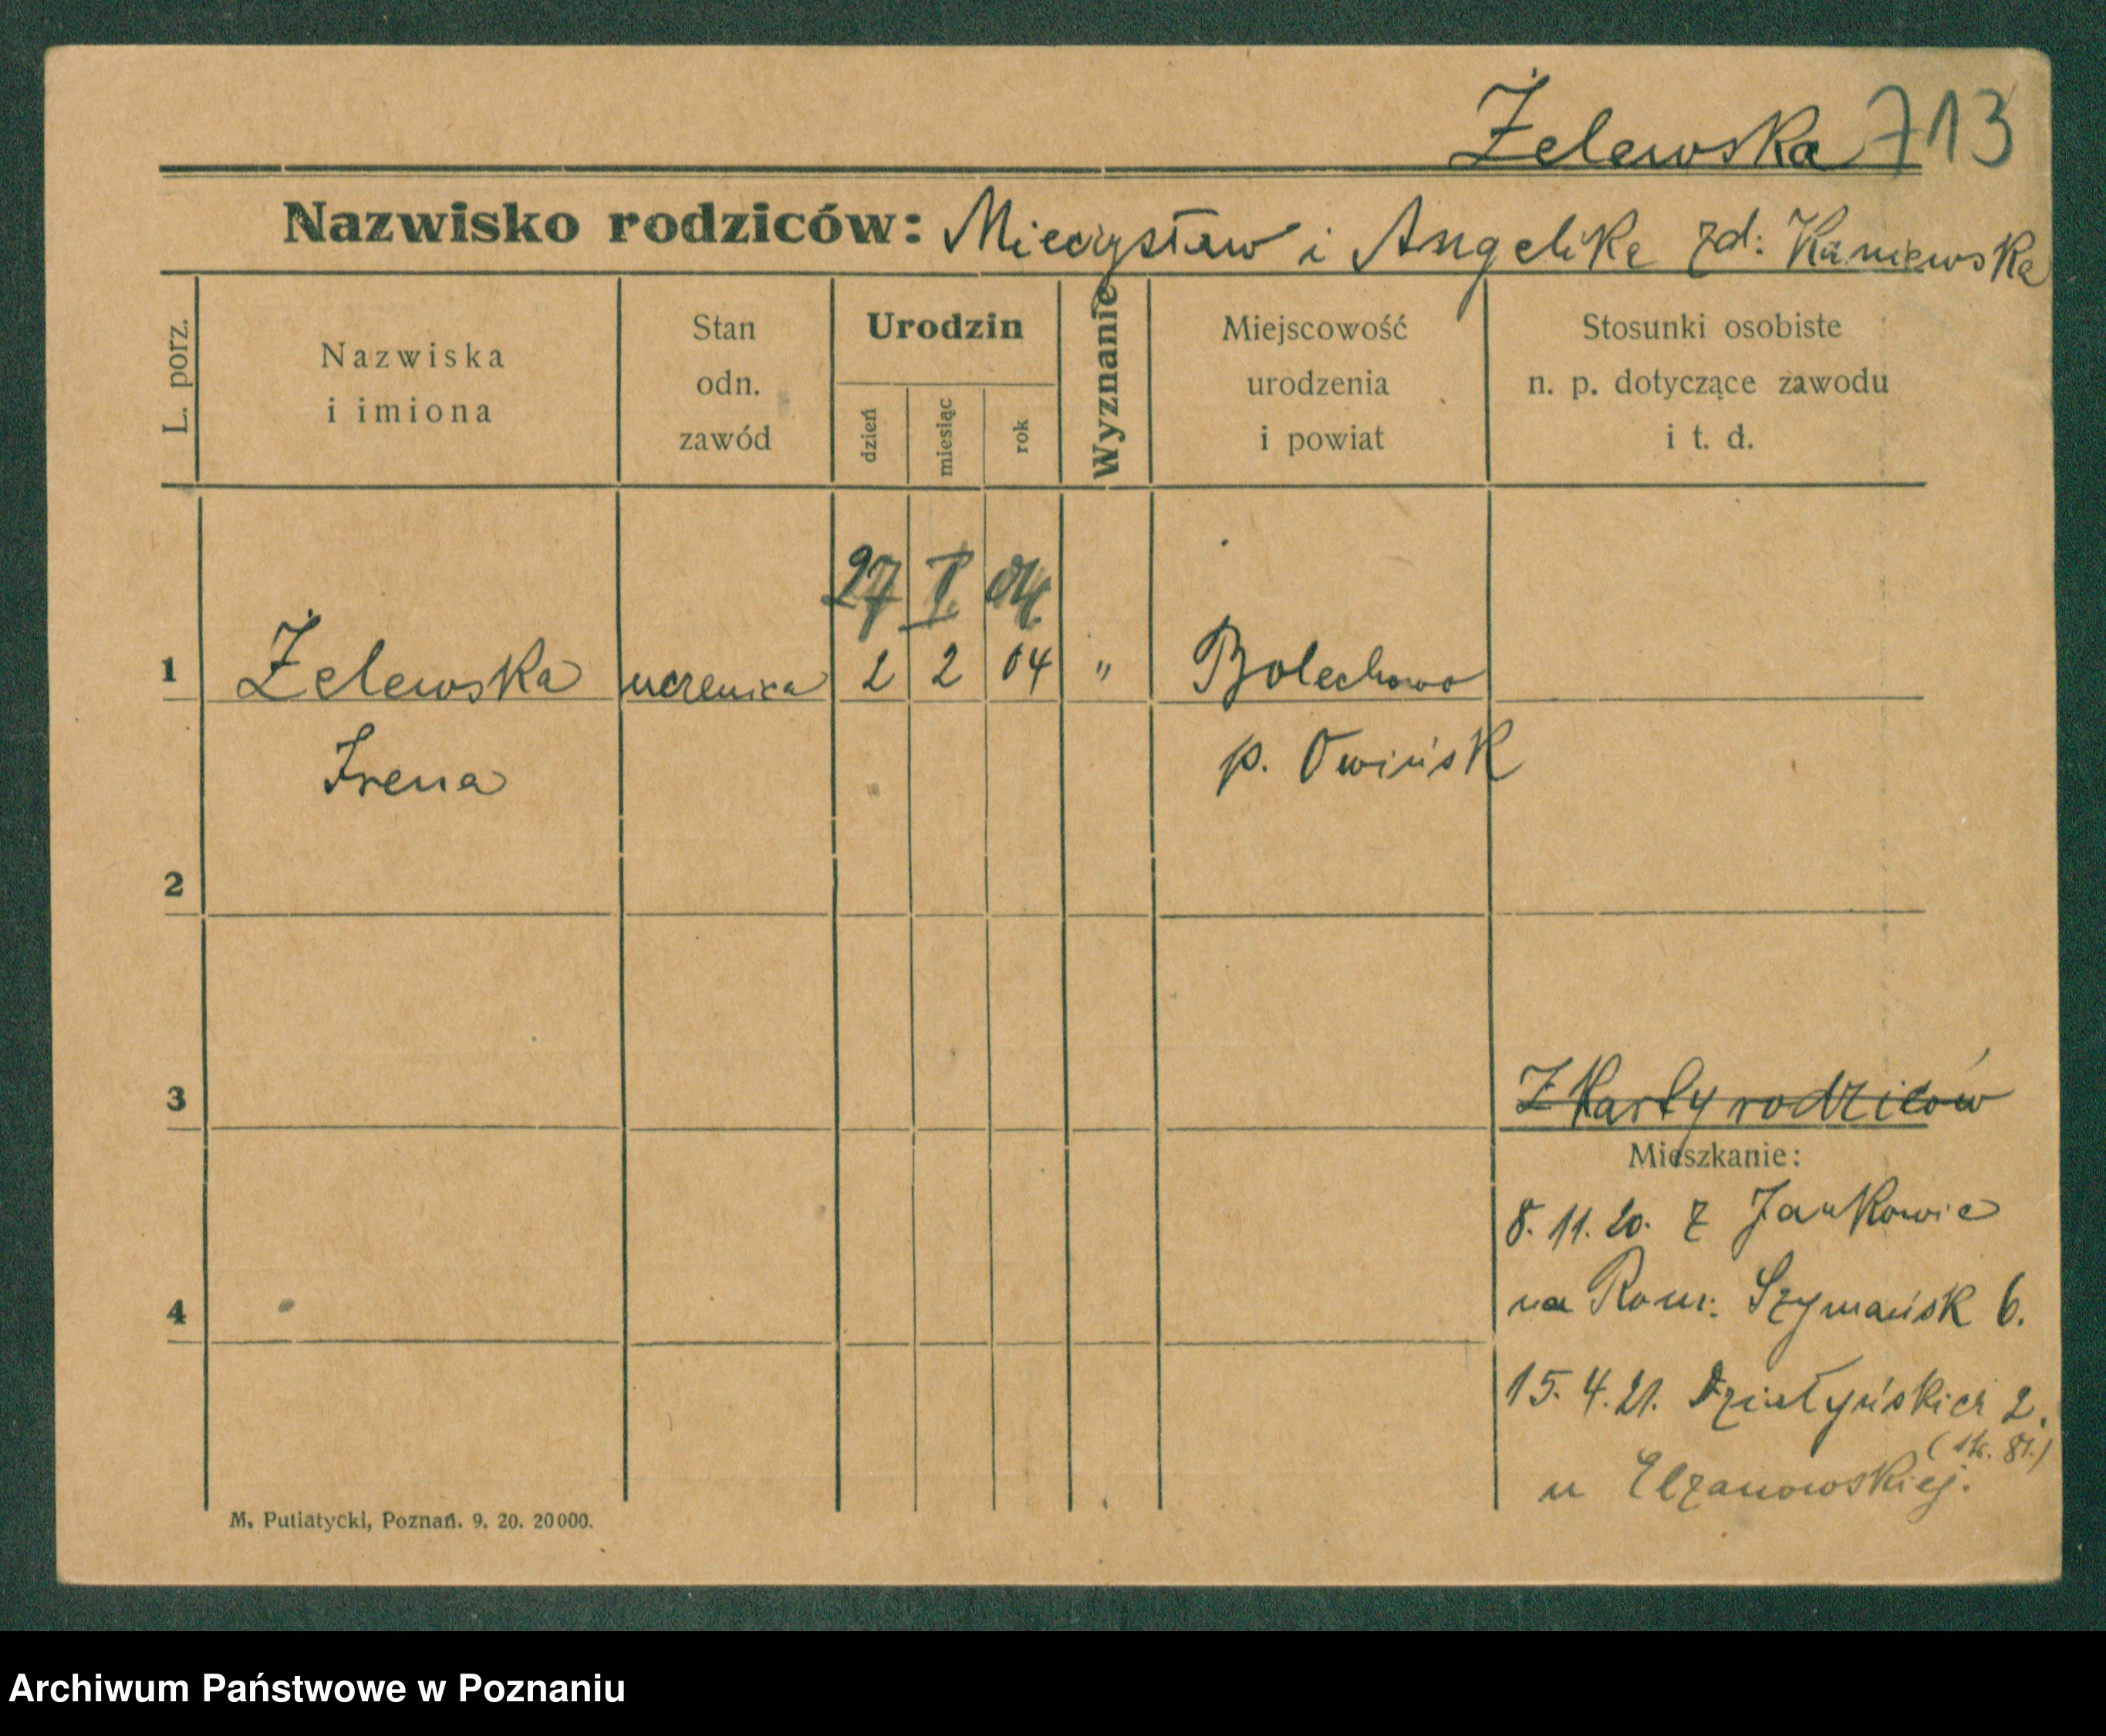 Żelewska 713
Nazwisko rodziców: Mieczysław i Angelika zd: Kaniewska
L. porz.
Nazwiska
i imiona
Stan
odn.
zawód
Urodzin
dzień
miesiąc
rok
Wyznanie
Miejscowość
urodzenia
i powiat
Stosunki osobiste
n. p. dotyczące zawodu
i t. d.
27 I. 04
1 Żelewska uczenica 2 2 04 " Bolechowo
Irena p. Owińsk
2
3 Z Karty rodziców
Mieszkanie:
8. 11. 20. z Jankowic
na Rom: Szymańsk 6.
4
15. 4. 21. Działyńskich 2.
u Elzanowskiej.
M. Putiatycki, Poznań. 9. 20. 20000.
Archiwum Państwowe w Poznaniu